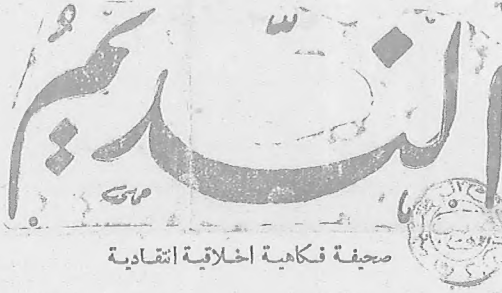 النّديمُ
صحيفة فكاهية اخلاقية انتقادية